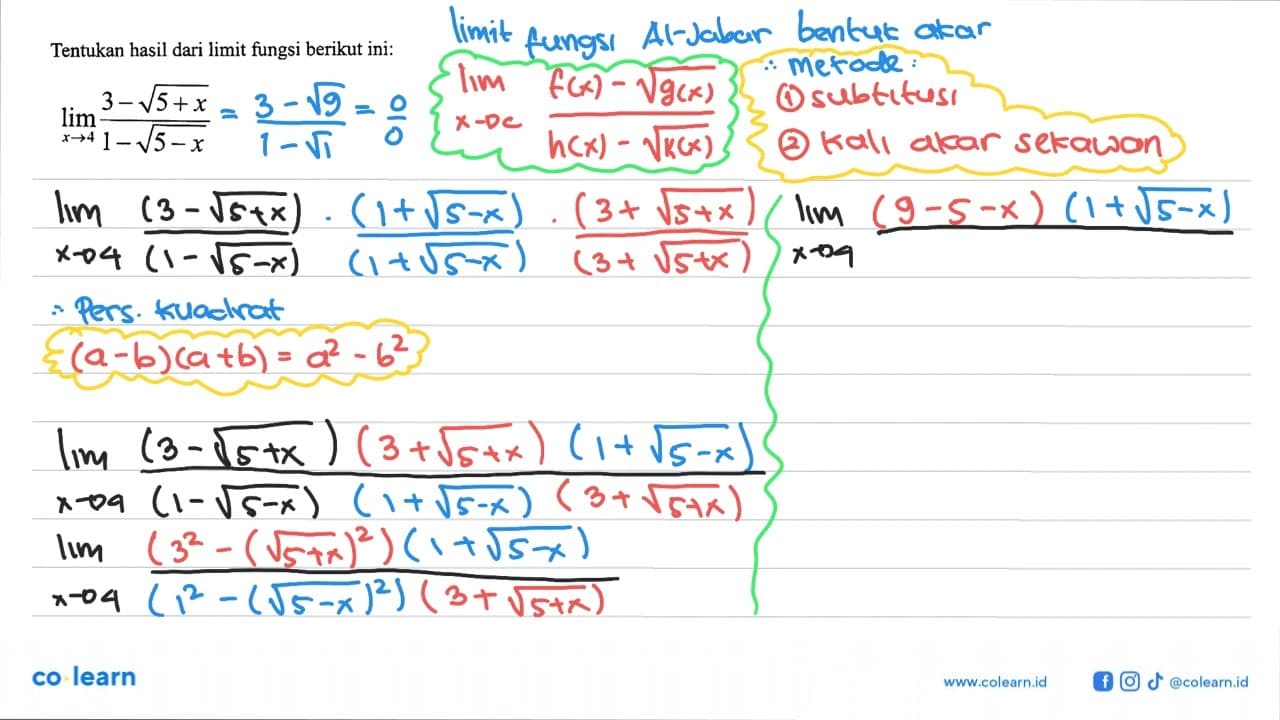 Tentukan hasil dari limit fungsi berikut ini:
lim x→4 (3 − √(5 + x))/(1 − √(5 − x)) = (3 − √9)/(1 − √1) = 0/0
limit fungsi Al-Jabar bentuk akar
lim x→c (f(x) − √g(x))/(h(x) − √k(x))
∴ metode:
① subtitusi
② kali akar sekawan
lim x→4 (3 − √(5+x))/(1 − √(5−x)) . (1 + √(5−x))/(1 + √(5−x)) . (3 + √(5+x))/(3 + √(5+x))
∴ Pers. kuadrat
(a − b)(a + b) = a² − b²
lim x→4 (3 − √(5+x)) (3 + √(5+x)) (1 + √(5−x)) / (1 − √(5−x)) (1 + √(5−x)) (3 + √(5+x))
lim x→4 (3² − (√(5+x))²) (1 + √(5−x)) / (1² − (√(5−x))²) (3 + √(5+x))
lim x→4 (9 − 5 − x) (1 + √(5−x))
co learn
www.colearn.id
@colearn.id